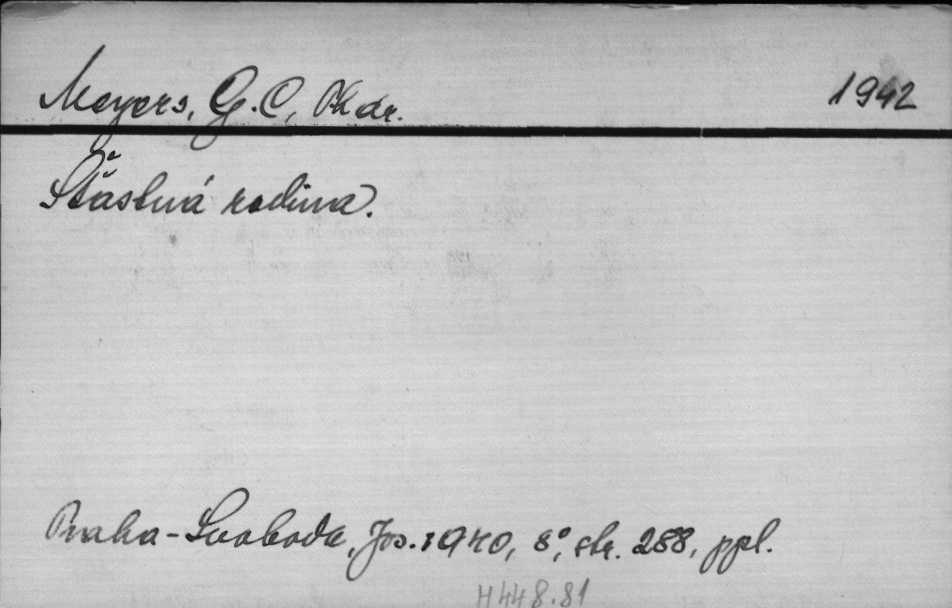 Meyers, G. C., Okdr. 1942
Šťastná rodina.
Praha - Svoboda, Jos. 1940, 8°, str. 288, ppl.
H 448.81